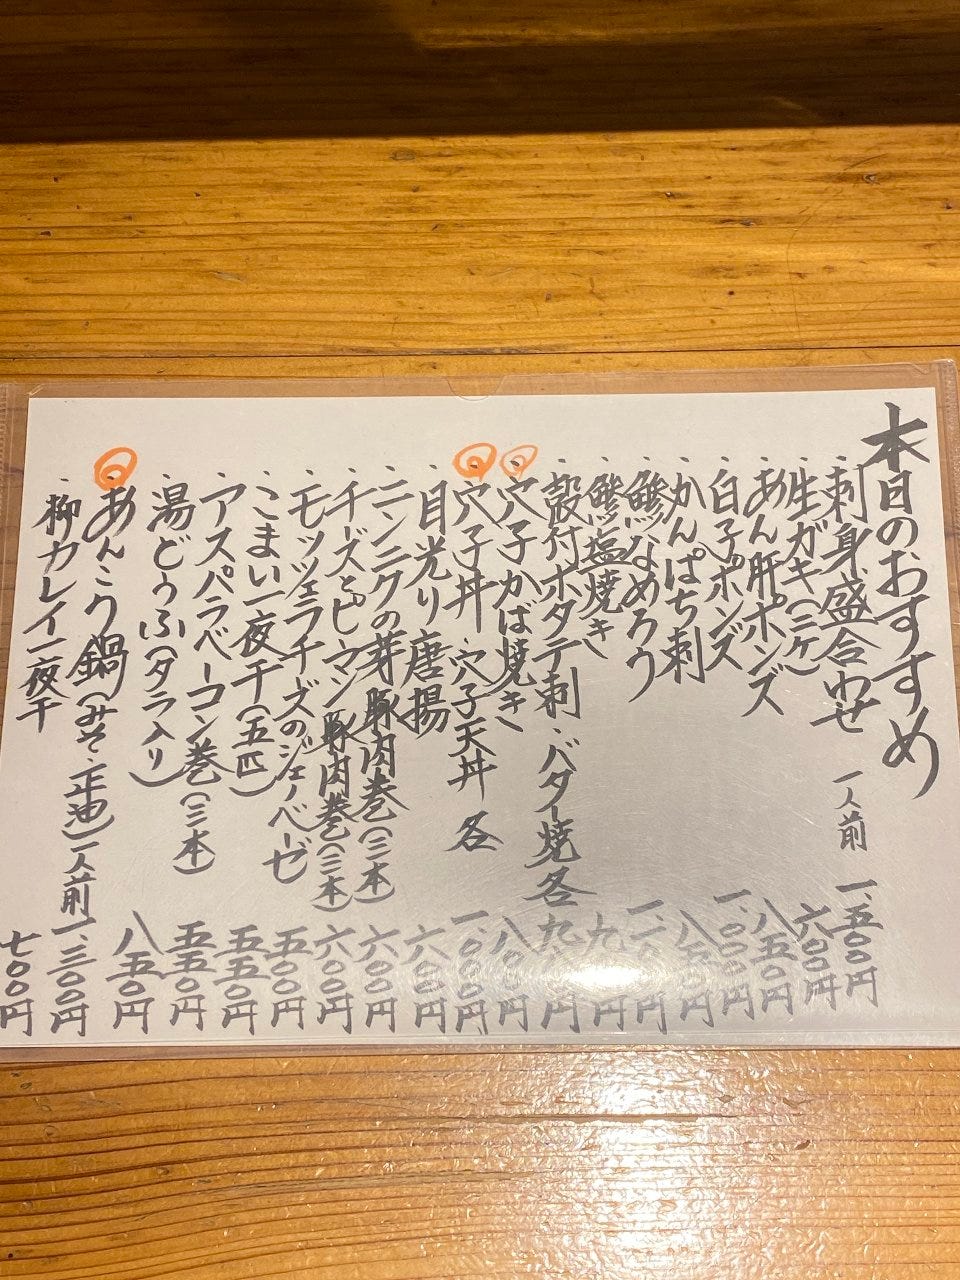 本日のおすすめ
、刺身盛合わせ 一人前 一、五〇〇円
、生ガキ(二ケ) 六〇〇円
、あん肝ポンズ 八五〇円
、白子ポンズ 一、〇〇〇円
、かんぱち刺 八五〇円
、鯵なめろう 一、〇〇円
、鯵塩焼き 九円
、殻付ホタテ刺・バター焼各 九円
、穴子かば焼き 八〇〇円
、穴子丼・穴子天丼 各 一、〇〇〇円
、目光り唐揚 六〇〇円
、ニンニクの芽豚肉巻(三本) 六〇〇円
、チーズ&ピーマン豚肉巻(三本) 六〇〇円
、モッツェラチーズのジェノベーゼ 五〇〇円
、こまい一夜干(五匹) 五五〇円
、アスパラベーコン巻(三本) 五五〇円
、湯どうふ(タラ入り) 八五〇円
、あんこう鍋(みそ・正油)一人前 一、三〇〇円
、柳カレイ一夜干 七〇〇円